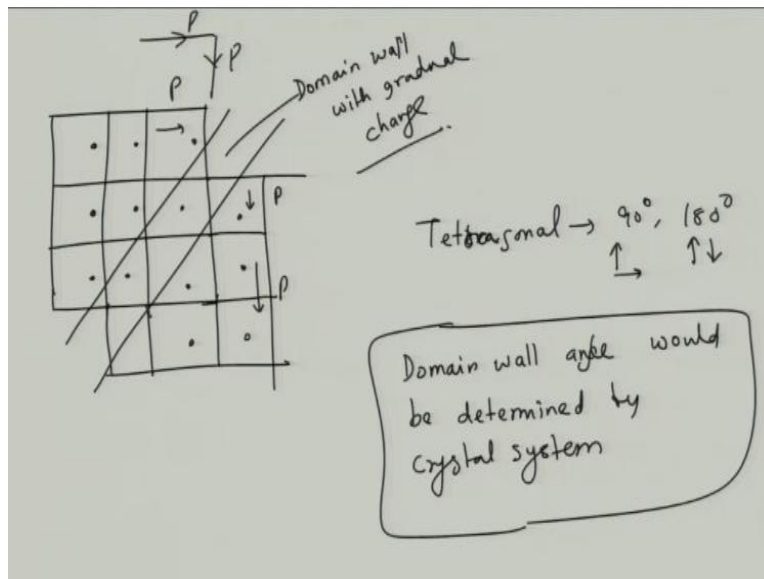 P
P
P
Domain wall
with gradual
change.
P
P
Tetragonal → 90°, 180°
↑→ ↑↓
Domain wall angle would
be determined by
crystal system